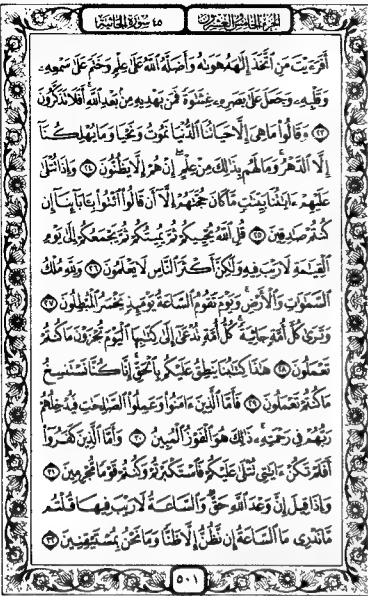 الجزء الخامس والعشرون
٤٥ سورة الجاثية
أَفَرَءَيْتَ مَنِ ٱتَّخَذَ إِلَٰهَهُۥ هَوَىٰهُ وَأَضَلَّهُ ٱللَّهُ عَلَىٰ عِلْمٍ وَخَتَمَ عَلَىٰ سَمْعِهِۦ
وَقَلْبِهِۦ وَجَعَلَ عَلَىٰ بَصَرِهِۦ غِشَٰوَةً فَمَن يَهْدِيهِ مِنۢ بَعْدِ ٱللَّهِ أَفَلَا تَذَكَّرُونَ
٢٣ وَقَالُوا۟ مَا هِىَ إِلَّا حَيَاتُنَا ٱلدُّنْيَا نَمُوتُ وَنَحْيَا وَمَا يُهْلِكُنَآ
إِلَّا ٱلدَّهْرُ وَمَا لَهُم بِذَٰلِكَ مِنْ عِلْمٍ إِنْ هُمْ إِلَّا يَظُنُّونَ ٢٤ وَإِذَا تُتْلَىٰ
عَلَيْهِمْ ءَايَٰتُنَا بَيِّنَٰتٍ مَّا كَانَ حُجَّتَهُمْ إِلَّآ أَن قَالُوا۟ ٱئْتُوا۟ بِـَٔابَآئِنَآ إِن
كُنتُمْ صَٰدِقِينَ ٢٥ قُلِ ٱللَّهُ يُحْيِيكُمْ ثُمَّ يُمِيتُكُمْ ثُمَّ يَجْمَعُكُمْ إِلَىٰ يَوْمِ
ٱلْقِيَٰمَةِ لَا رَيْبَ فِيهِ وَلَٰكِنَّ أَكْثَرَ ٱلنَّاسِ لَا يَعْلَمُونَ ٢٦ وَلِلَّهِ مُلْكُ
ٱلسَّمَٰوَٰتِ وَٱلْأَرْضِ وَيَوْمَ تَقُومُ ٱلسَّاعَةُ يَوْمَئِذٍ يَخْسَرُ ٱلْمُبْطِلُونَ ٢٧
وَتَرَىٰ كُلَّ أُمَّةٍ جَاثِيَةً كُلُّ أُمَّةٍ تُدْعَىٰٓ إِلَىٰ كِتَٰبِهَا ٱلْيَوْمَ تُجْزَوْنَ مَا كُنتُمْ
تَعْمَلُونَ ٢٨ هَٰذَا كِتَٰبُنَا يَنطِقُ عَلَيْكُم بِٱلْحَقِّ إِنَّا كُنَّا نَسْتَنسِخُ
مَا كُنتُمْ تَعْمَلُونَ ٢٩ فَأَمَّا ٱلَّذِينَ ءَامَنُوا۟ وَعَمِلُوا۟ ٱلصَّٰلِحَٰتِ فَيُدْخِلُهُمْ
رَبُّهُمْ فِى رَحْمَتِهِۦ ذَٰلِكَ هُوَ ٱلْفَوْزُ ٱلْمُبِينُ ٣٠ وَأَمَّا ٱلَّذِينَ كَفَرُوٓا۟
أَفَلَمْ تَكُنْ ءَايَٰتِى تُتْلَىٰ عَلَيْكُمْ فَٱسْتَكْبَرْتُمْ وَكُنتُمْ قَوْمًا مُّجْرِمِينَ ٣١
وَإِذَا قِيلَ إِنَّ وَعْدَ ٱللَّهِ حَقٌّ وَٱلسَّاعَةُ لَا رَيْبَ فِيهَا قُلْتُم
مَّا نَدْرِى مَا ٱلسَّاعَةُ إِن نَّظُنُّ إِلَّا ظَنًّا وَمَا نَحْنُ بِمُسْتَيْقِنِينَ ٣٢
٥٠١